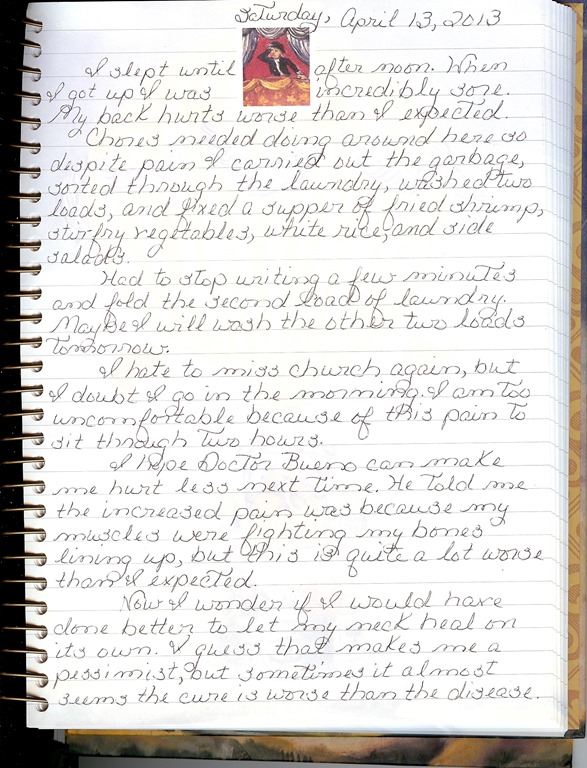 Saturday, April 13, 2013
I slept until after noon. When
I got up I was incredibly sore.
My back hurts worse than I expected.
Chores needed doing around here so
despite pain I carried out the garbage,
sorted through the laundry, washed two
loads, and fixed a supper of fried shrimp,
stir-fry vegetables, white rice, and side
salads.
Had to stop writing a few minutes
and fold the second load of laundry.
Maybe I will wash the other two loads
tomorrow.
I hate to miss church again, but
I doubt I go in the morning. I am too
uncomfortable because of this pain to
sit through two hours.
I hope Doctor Bueno can make
me hurt less next time. He told me
the increased pain was because my
muscles were fighting my bones
lining up, but this is quite a lot worse
than I expected.
Now I wonder if I would have
done better to let my neck heal on
its own. I guess that makes me a
pessimist, but sometimes it almost
seems the cure is worse than the disease.